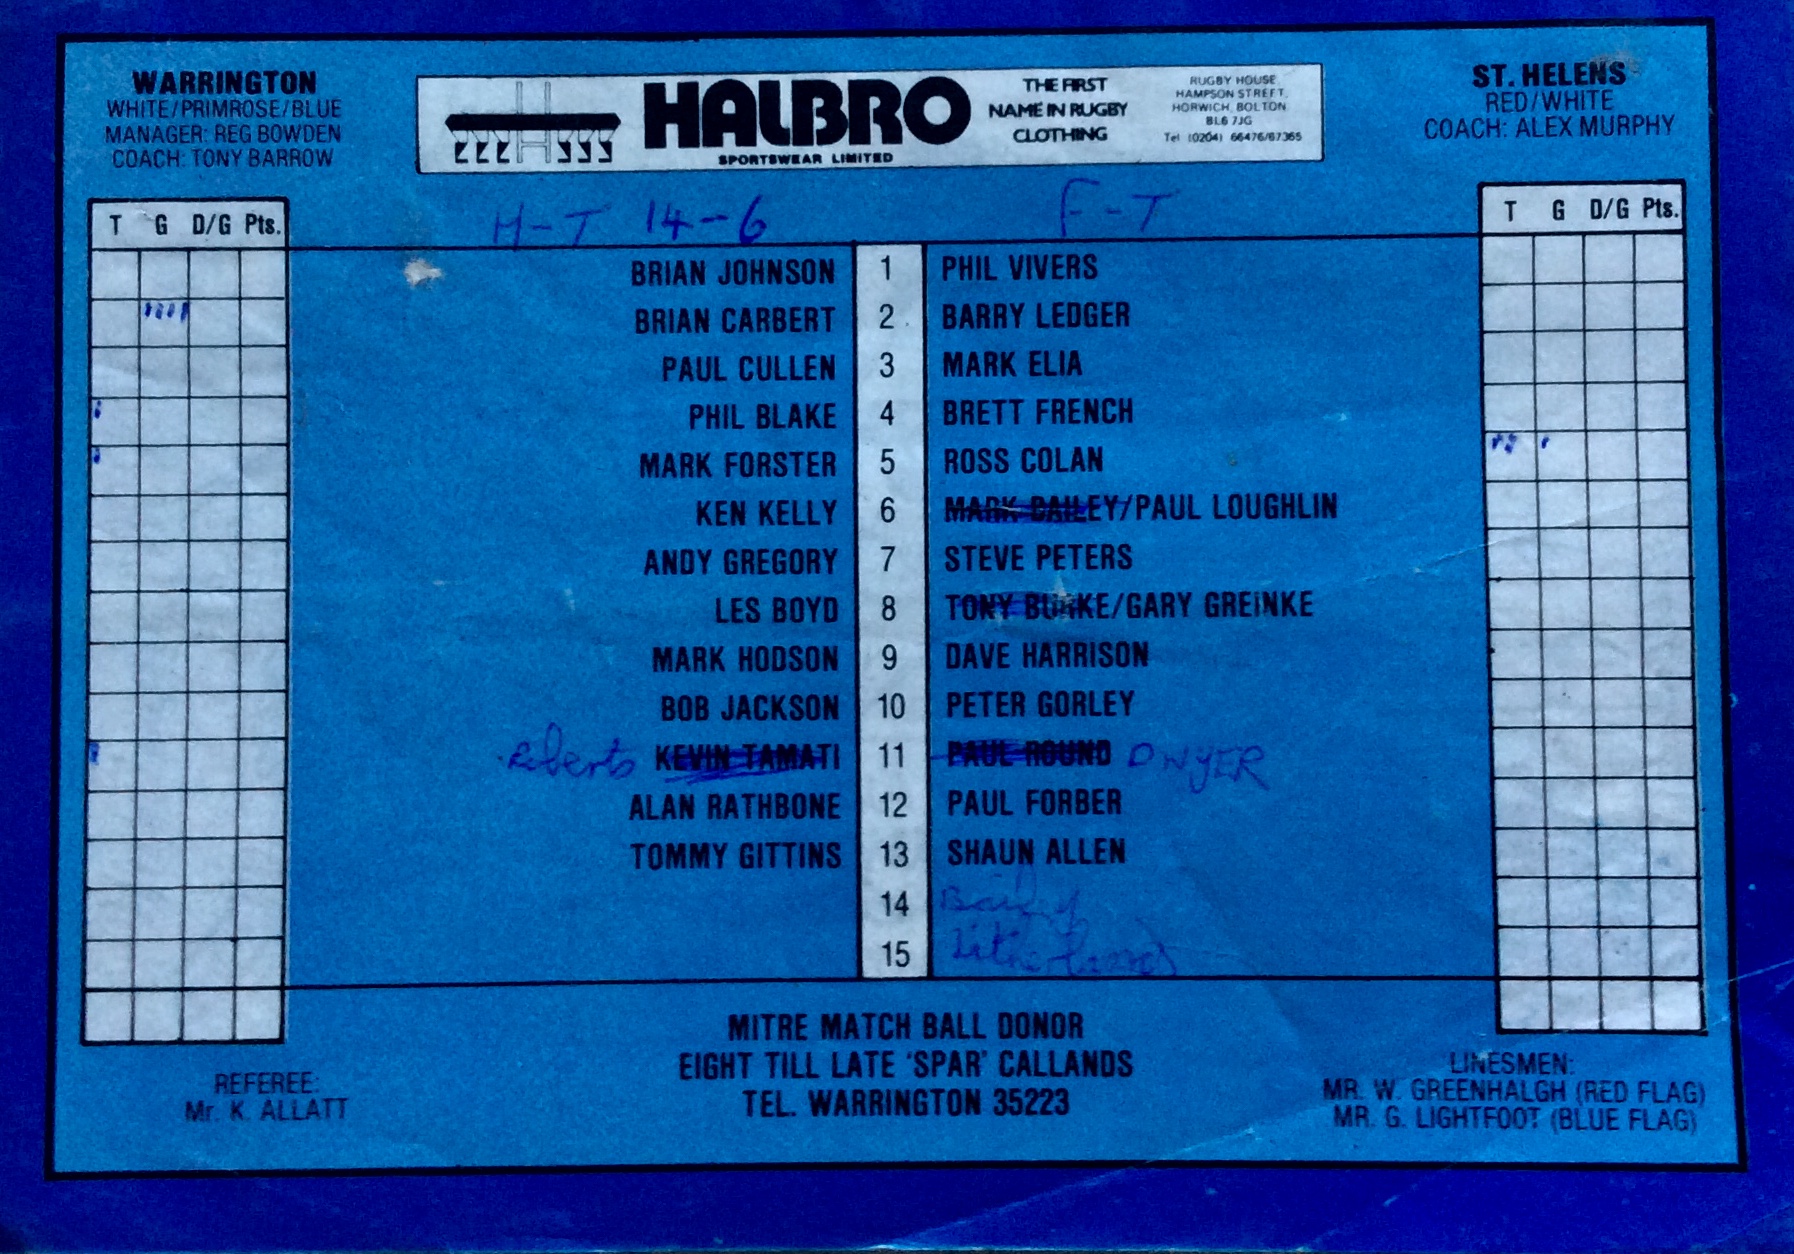 WARRINGTON
WHITE/PRIMROSE/BLUE
MANAGER: REG BOWDEN
COACH: TONY BARROW
HALBRO
SPORTSWEAR LIMITED
THE FIRST
NAME IN RUGBY
CLOTHING
RUGBY HOUSE,
HAMPSON STREET,
HORWICH, BOLTON
BL6 7JG
Tel (0204) 66476/67365
ST. HELENS
RED/WHITE
COACH: ALEX MURPHY
T G D/G Pts.
H-T 14-6 F-T
T G D/G Pts.
BRIAN JOHNSON 1 PHIL VIVERS
BRIAN CARBERT 2 BARRY LEDGER
PAUL CULLEN 3 MARK ELIA
PHIL BLAKE 4 BRETT FRENCH
MARK FORSTER 5 ROSS COLAN
KEN KELLY 6 MARK BAILEY/PAUL LOUGHLIN
ANDY GREGORY 7 STEVE PETERS
LES BOYD 8 TONY BURKE/GARY GREiNKE
MARK HODSON 9 DAVE HARRISON
BOB JACKSON 10 PETER GORLEY
Roberts KEVIN TAMATI 11 PAUL ROUND DWYER
ALAN RATHBONE 12 PAUL FORBER
TOMMY GITTINS 13 SHAUN ALLEN
14 Bailey
15 Litherland
MITRE MATCH BALL DONOR
EIGHT TILL LATE 'SPAR' CALLANDS
TEL. WARRINGTON 35223
REFEREE:
Mr. K. ALLATT
LINESMEN:
MR. W. GREENHALGH (RED FLAG)
MR. G. LIGHTFOOT (BLUE FLAG)